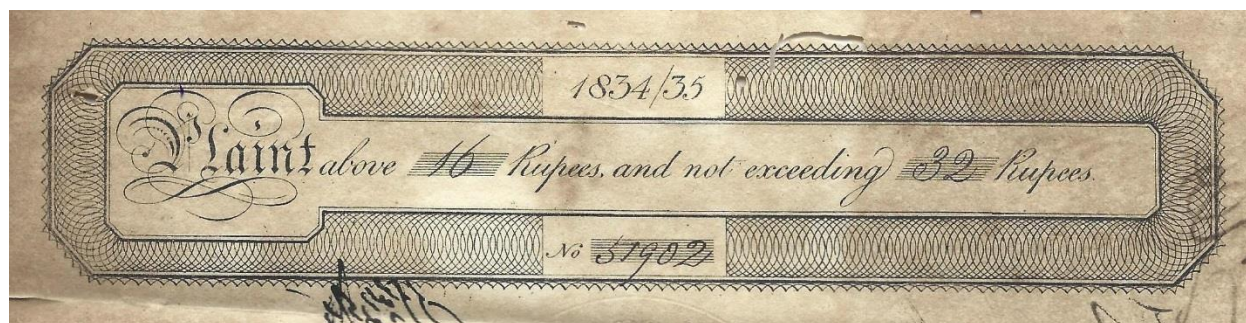 1834/35
Plaint above 16 Rupees, and not exceeding 32 Rupees.
No 51902